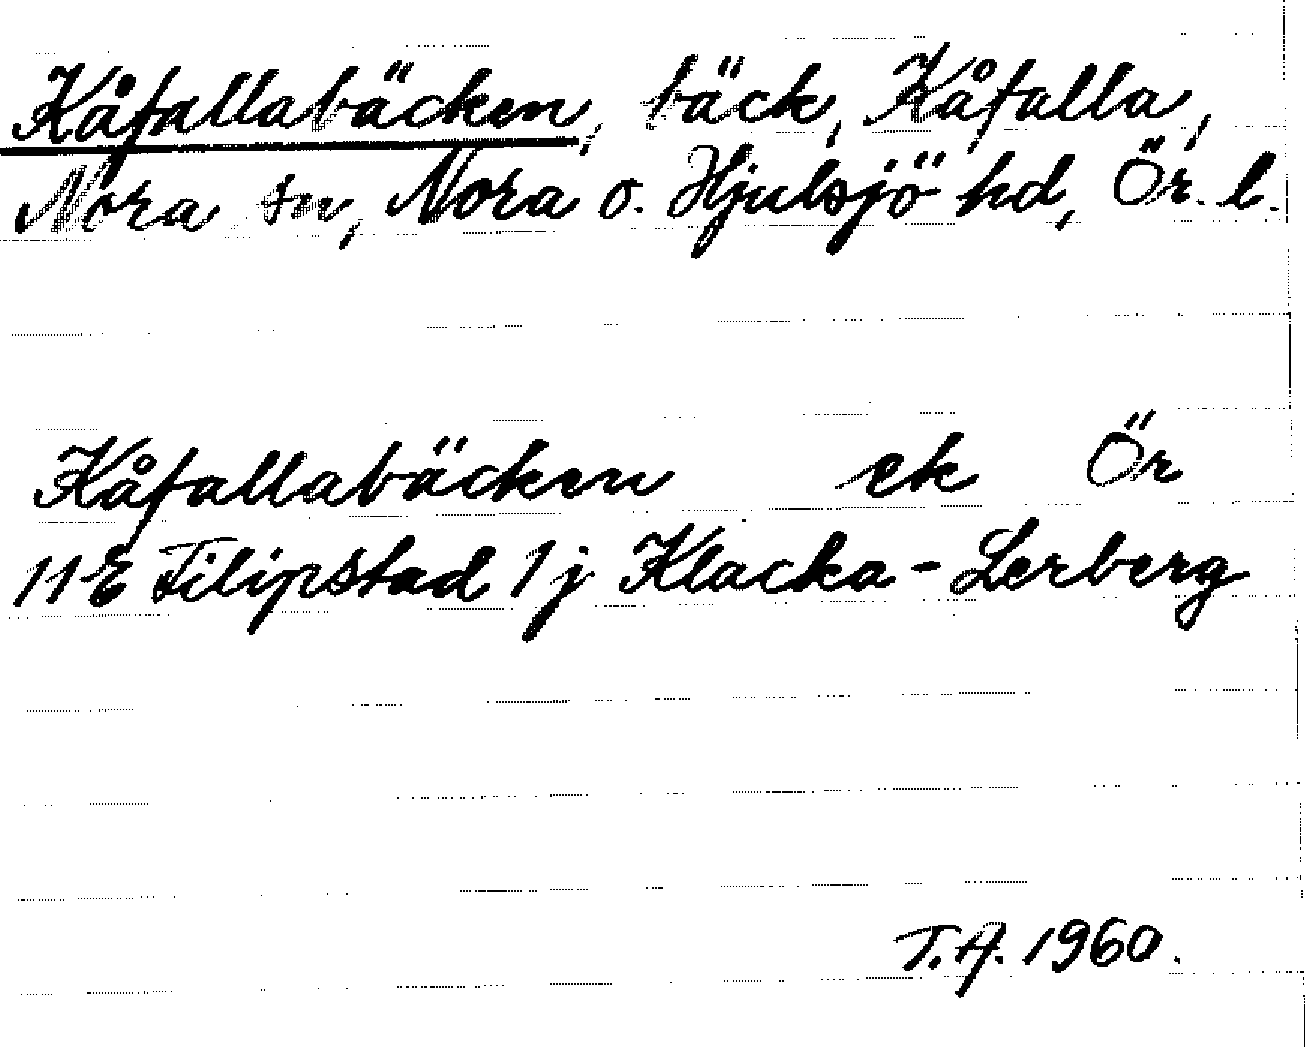 Kåfallabäcken, bäck, Kåfalla,
Nora sn, Nora o. Hjulsjö hd, Ör. l.
Kåfallabäcken ek Ör
11E Filipstad 1j Klacka-Lerberg
T.A. 1960.